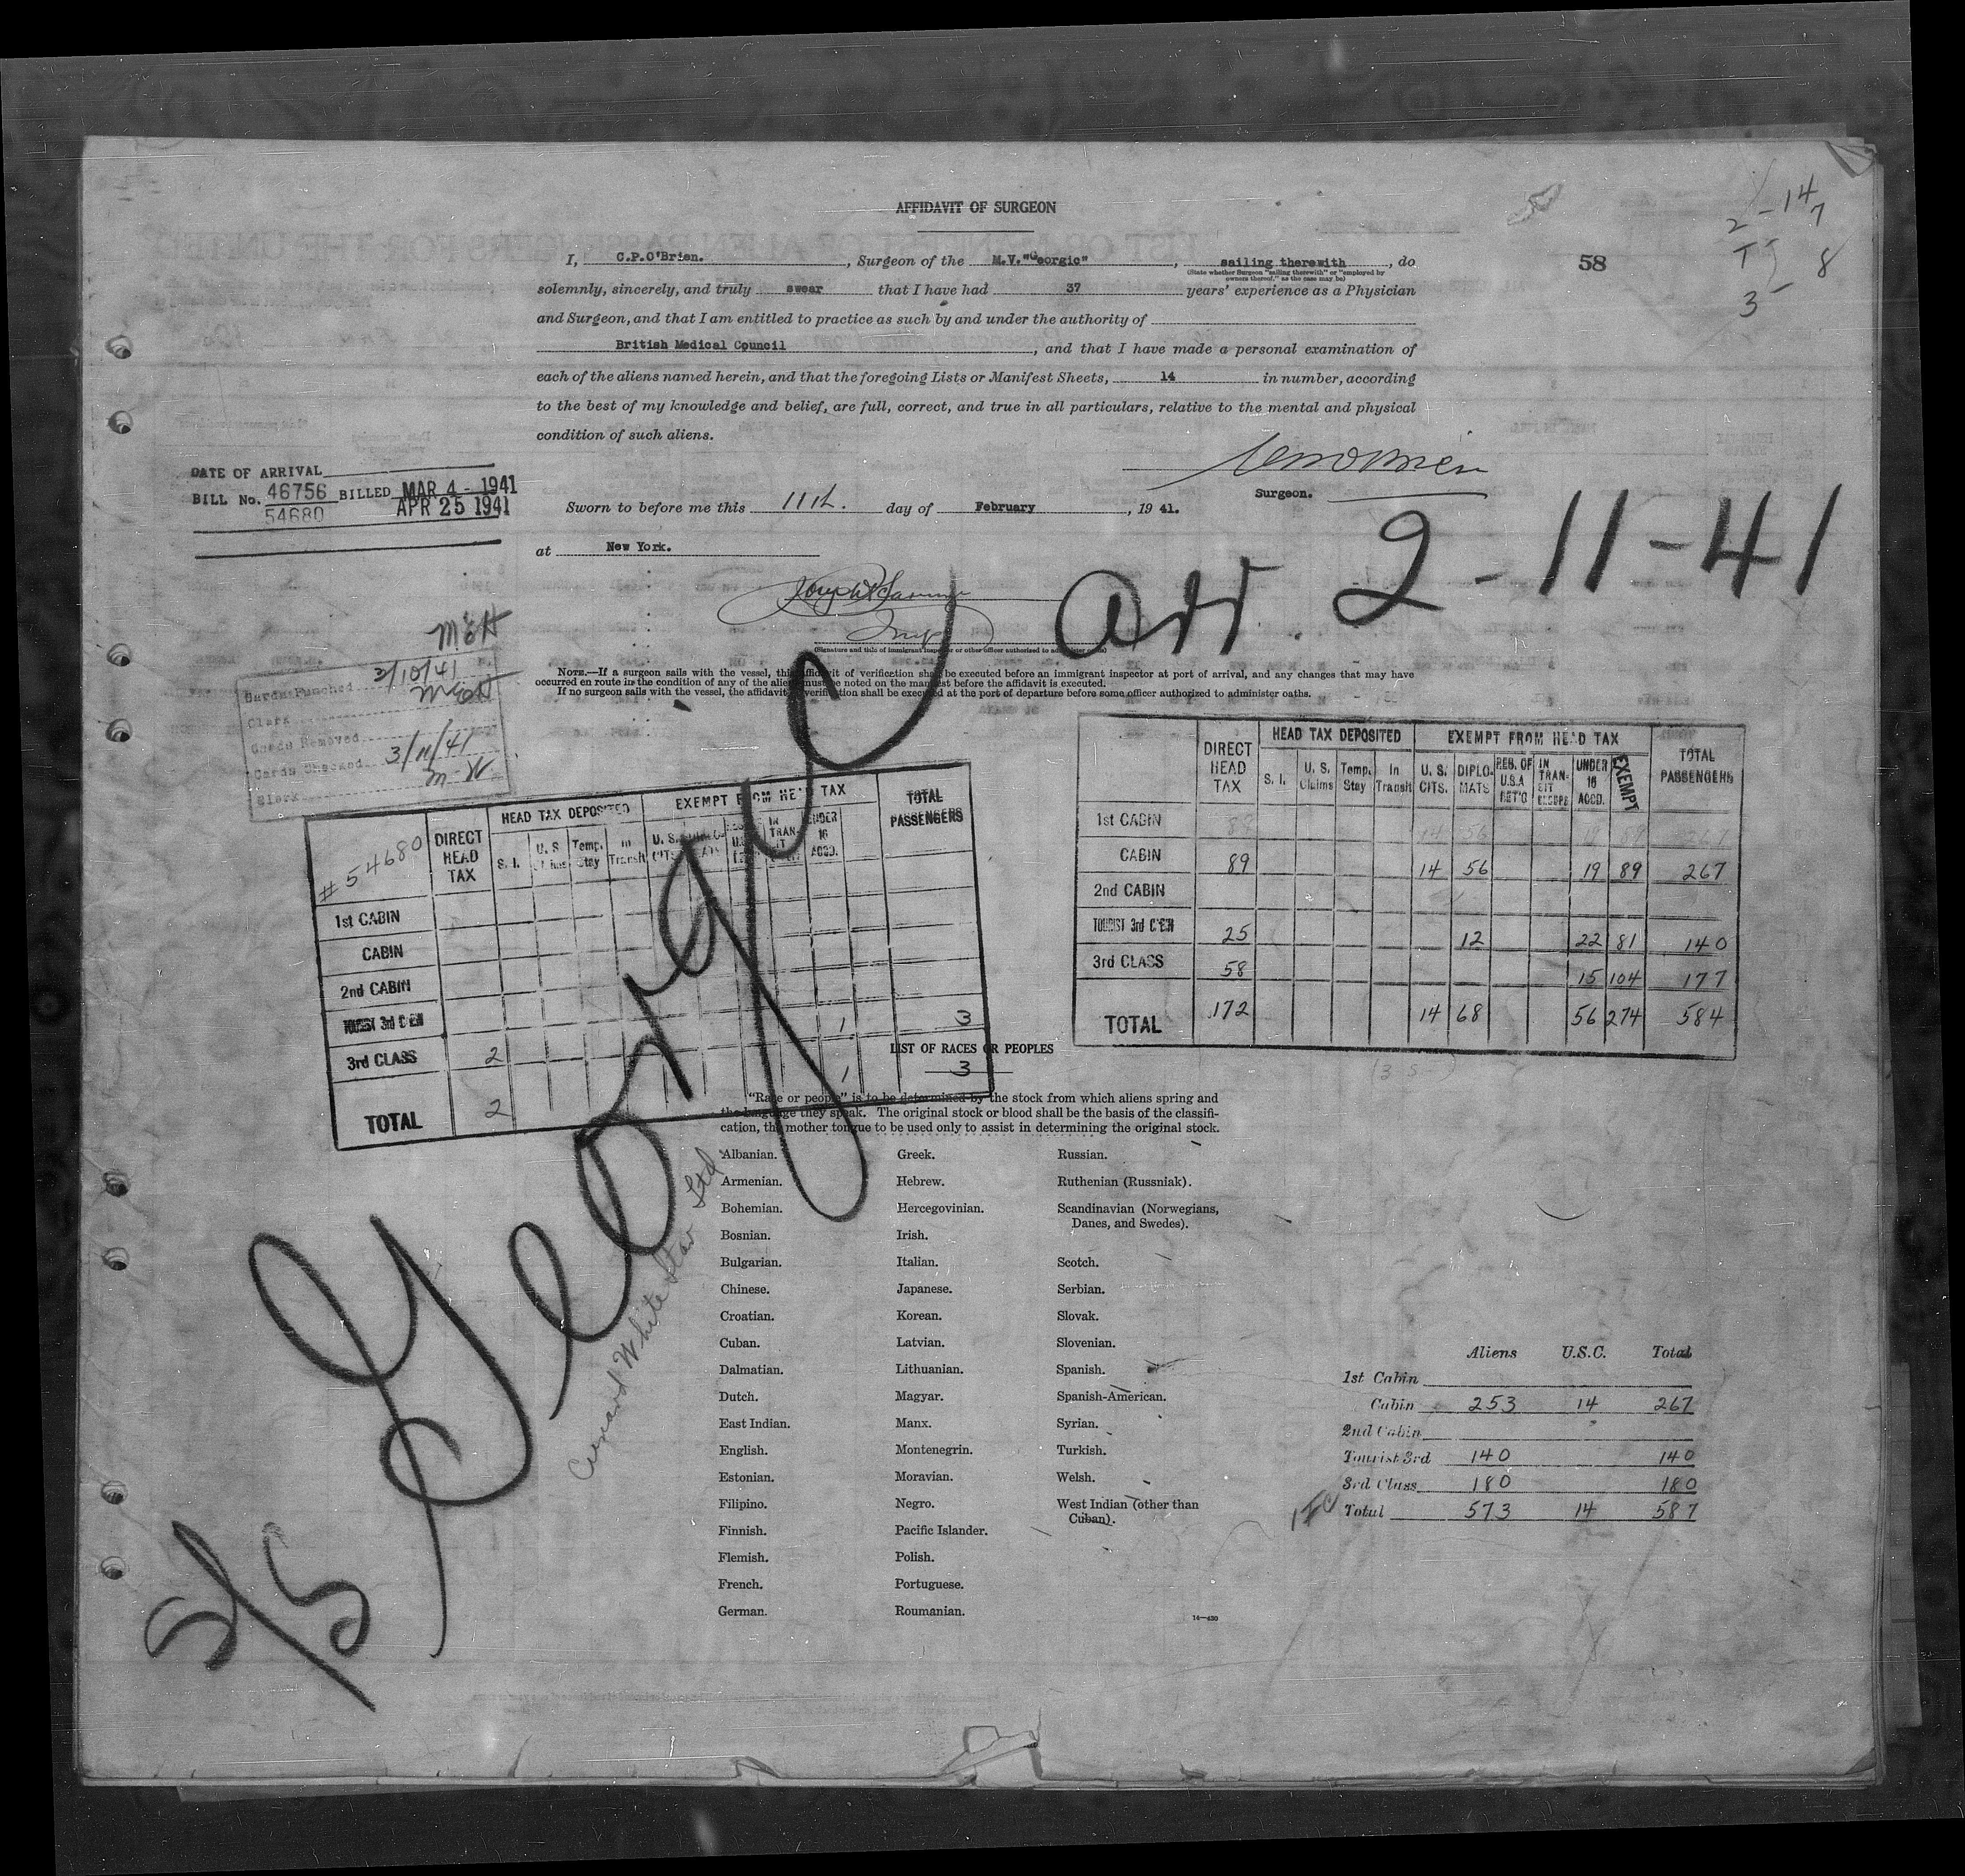 AFFIDAVIT OF SURGEON
I, C.P.O'Brien. , Surgeon of the M.V."Georgic" , sailing therewith , do
(State whether Surgeon "sailing therewith" or "employed by
owners thereof," as the case may be)
solemnly, sincerely, and truly swear that I have had 37 years' experience as a Physician
and Surgeon, and that I am entitled to practice as such by and under the authority of
British Medical Council , and that I have made a personal examination of
each of the aliens named herein, and that the foregoing Lists or Manifest Sheets, 14 in number, according
to the best of my knowledge and belief, are full, correct, and true in all particulars, relative to the mental and physical
condition of such aliens.
58
2 - 14
7
8
3 -
Surgeon.
Sworn to before me this 11th. day of February , 19 41.
at New York.
DATE OF ARRIVAL
BILL No. 46756 BILLED MAR 4 - 1941
54680 APR 25 1941
arr. 2-11-41
Insp
(Signature and title of immigrant inspector or other officer authorized to administer oaths)
NOTE.—If a surgeon sails with the vessel, this affidavit of verification shall be executed before an immigrant inspector at port of arrival, and any changes that may have
occurred en route in the condition of any of the aliens must be noted on the manifest before the affidavit is executed.
If no surgeon sails with the vessel, the affidavit of verification shall be executed at the port of departure before some officer authorized to administer oaths.
Cards Punched 3/10/41
Clerk
Cards Removed
Cards Checked 3/11/41
Clerk M-W
#54680
DIRECT HEAD TAX
HEAD TAX DEPOSITED
EXEMPT FROM HEAD TAX
TOTAL PASSENGERS
S. I. U. S. Claims Temp. Stay In Transit U. S. CITS. IN TRAN- SIT UNDER 16 ACCD.
1st CABIN
CABIN
2nd CABIN
TOURIST 3rd CABIN 1 3
3rd CLASS 2 1 3
TOTAL 2
DIRECT HEAD TAX
HEAD TAX DEPOSITED
EXEMPT FROM HEAD TAX
TOTAL PASSENGERS
S. I. U. S. Claims Temp. Stay In Transit U. S. CITS. DIPLO- MATS RES. OF U.S.A RET'G IN TRAN- SIT UNDER 16 ACCD. EXEMPT
1st CABIN 89 14 56 19 89 267
CABIN 89 14 56 19 89 267
2nd CABIN
TOURIST 3rd CABIN 25 12 22 81 140
3rd CLASS 58 15 104 177
TOTAL 172 14 68 56 274 584
LIST OF RACES OR PEOPLES
"Race or people" is to be determined by the stock from which aliens spring and
the language they speak. The original stock or blood shall be the basis of the classifi-
cation, the mother tongue to be used only to assist in determining the original stock.
Albanian. Greek. Russian.
Armenian. Hebrew. Ruthenian (Russniak).
Bohemian. Hercegovinian. Scandinavian (Norwegians,
Danes, and Swedes).
Bosnian. Irish.
Bulgarian. Italian. Scotch.
Chinese. Japanese. Serbian.
Croatian. Korean. Slovak.
Cuban. Latvian. Slovenian.
Dalmatian. Lithuanian. Spanish.
Dutch. Magyar. Spanish-American.
East Indian. Manx. Syrian.
English. Montenegrin. Turkish.
Estonian. Moravian. Welsh.
Filipino. Negro. West Indian (other than
Cuban).
Finnish. Pacific Islander.
Flemish. Polish.
French. Portuguese.
German. Roumanian.
14—430
S/S Georgic
Cunard White Star Ltd
Aliens U.S.C. Total
1st Cabin
Cabin 253 14 267
2nd Cabin
Tourist 3rd 140 140
3rd Class 180 180
Total 573 14 587